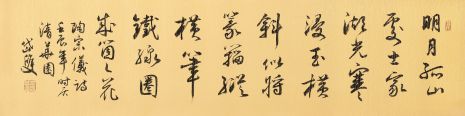 明月孤山
處士家
湖光寒
浸玉橫
斜似將
篆籀縱
橫筆
鐵線圈
成箇箇花
陶宗儀詩
壬辰年时庆
清華園